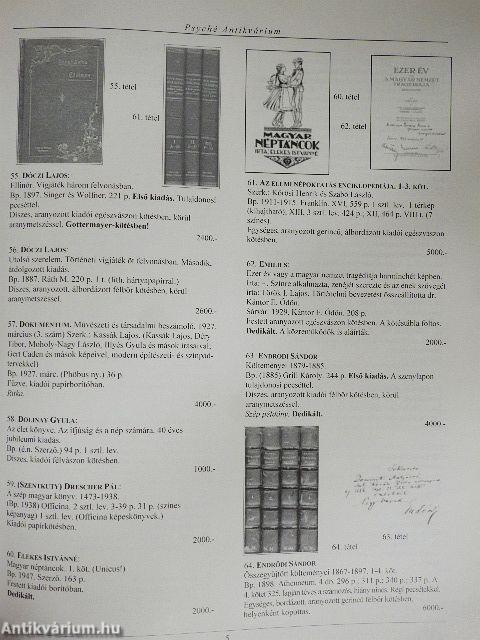 Psyché Antikvárium
55. tétel
61. tétel
55. DÓCZI LAJOS:
Ellinor. Vígjáték három felvonásban.
Bp. 1897. Singer és Wolfner. 221 p. Első kiadás. Tulajdonosi
pecséttel.
Díszes, aranyozott kiadói egészvászon kötésben, körül
aranymetszéssel. Gottermayer-kötésben!
2400.-
56. DÓCZI LAJOS:
Utolsó szerelem. Történeti vígjáték öt felvonásban. Második,
átdolgozott kiadás.
Bp. 1887. Ráth M. 220 p. 1 t. (lith. hártyapapírral.)
Díszes, aranyozott, álbordázott félbőr kötésben, körül
aranymetszéssel.
2600.-
57. DOKUMENTUM. Művészeti és társadalmi beszámoló. 1927.
március (3. szám) Szerk.: Kassák Lajos. (Kassák Lajos, Déry
Tibor, Moholy-Nagy László, Illyés Gyula és mások írásaival,
Gert Caden és mások képeivel, modern építészeti- és színpad-
tervekkel)
Bp. 1927. márc. (Phőbus ny.) 36 p.
Fűzve, kiadói papírborítóban.
Ritka.
4000.-
58. DOLINAY GYULA:
Az élet könyve. Az ifjúság és a nép számára. 40 éves
jubileumi kiadás.
Bp. (é.n. Szerző.) 94 p. 1 sztl. lev.
Díszes, kiadói félvászon kötésben.
1000.-
59. (SZENTKUTY) DRESCHER PÁL:
A szép magyar könyv. 1473-1938.
(Bp. 1938) Officina. 2 sztl. lev. 3-39 p. 31 p. (színes
képanyag) 1 sztl. lev. (Officina képeskönyvek.)
Kiadói papírkötésben.
2000.-
60. ELEKES ISTVÁNNÉ:
Magyar néptáncok. 1. köt. (Unicus!)
Bp. 1947. Szerző. 163 p.
Festett kiadói borítóban.
Dedikált.
2000.-
MAGYAR
NÉPTÁNCOK
IRTA: ELEKES ISTVÁNNÉ
60. tétel
62. tétel
EZER ÉV
A MAGYAR NEMZET
TRAGÉDIÁJA
61. AZ ELEMI NÉPOKTATÁS ENCIKLOPÉDIÁJA. 1-3. KÖT.
Szerk.: Körösi Henrik és Szabó László.
Bp. 1911-1915. Franklin. XVI, 559 p. 1 sztl. lev. 1 térkép
(kihajtható), XIII, 3 sztl. lev. 424 p.; XII, 464 p. VIII t. (7
színes).
Egységes, aranyozott gerincű, álbordázott kiadói egészvászon
kötésben.
5000.-
62. EMILIUS:
Ezer év vagy a magyar nemzet tragédiája harminchét képben.
Írta: -. Színre alkalmazta, zenéjét szerezte és az ének szövegét
írta: Török I. Lajos. Történelmi bevezetést összeállította dr.
Kántor E. Ödön.
Sárvár. 1929. Kántor E. Ödön. 208 p.
Festett aranyozott egészvászon kötésben. A kötéstábla foltos.
Dedikált. A közreműködők is aláírták.
2000.-
63. ENDRŐDI SÁNDOR
Költeményei. 1879-1885.
Bp. (1885) Grill Károly. 244 p. Első kiadás. A szennylapon
tulajdonosi pecséttel.
Díszes, aranyozott kiadói félbőr kötésben, körül
aranymetszéssel.
Szép példány. Dedikált.
4000.-
64. tétel
63. tétel
64. ENDRŐDI SÁNDOR
Összegyűjtött költeményei 1867-1897. 1-4. köt.
Bp. 1898. Athenaeum. 4 db. 296 p.; 311 p.; 340 p.; 337 p. A
4. kötet 325. lapján téves a számozás, hiány nincs. Régi pecsétekkel.
Egységes, bordázott, aranyozott gerincű félbőr kötésben,
helyenként kopottas.
6000.-
5
Antikvárium.hu